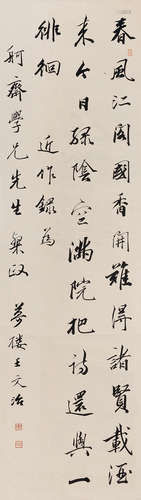 春風江閣國香開難得諸賢載酒
来今日緑陰空滿院把詩還興一
徘徊
近作録為
舸齋學兄先生粲政
夢樓王文治